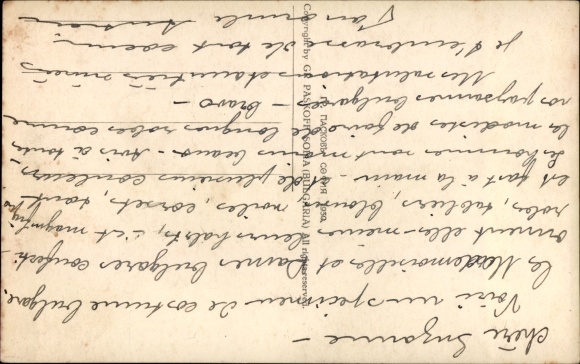 Chère Suzanne —
Voici un spécimen de costume bulgare.
les Mademoiselles et Dames bulgares confecti-
onnent elles-mêmes leurs habits, c'est magnifique
robes, tabliers, blouses, voiles, corset, tout
est fait à la main — de plusieurs couleurs.
les hommes sont moins beaux — Avis à toutes
les modistes de faire longues robes comme
nos paysannes bulgares — Bravo —
Mes salutations et amitiés sincères
je t'embrasse de tout coeur.
Copyright by GR. PASKOFF, SOFIA (BULGARIA) All rights reserved.
ПАСКОВЪ, СОФИЯ